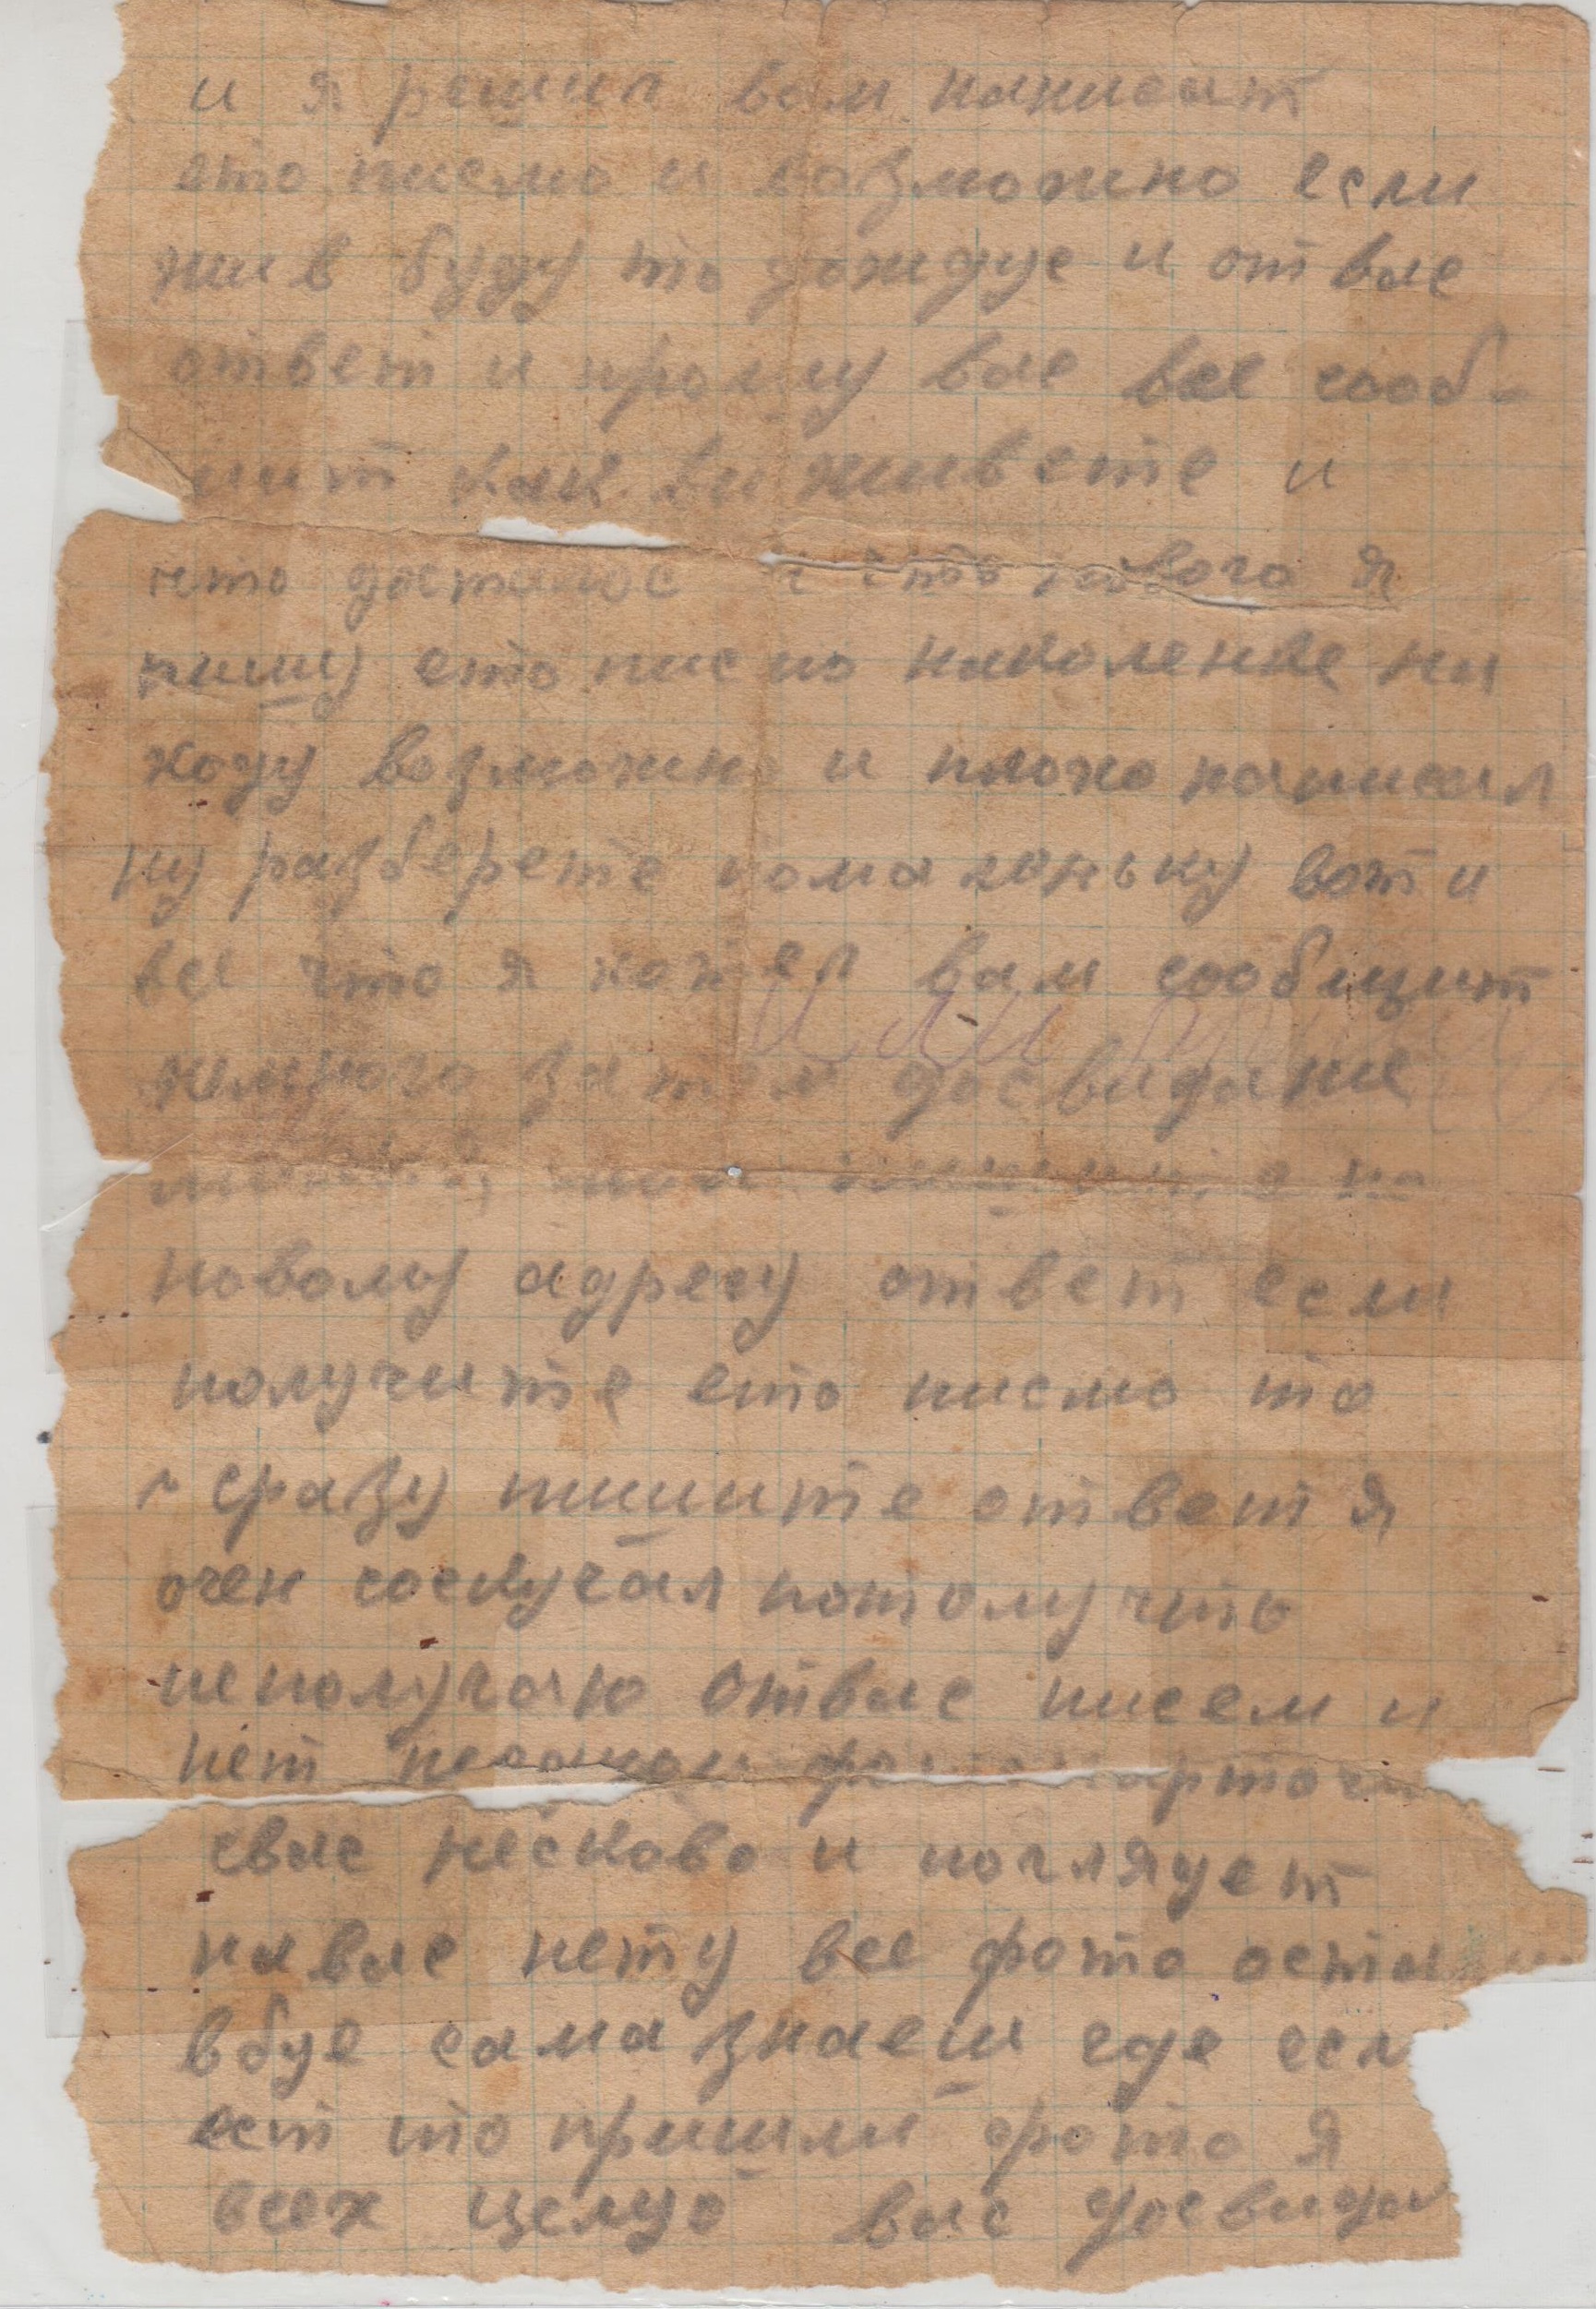 и я решил вам написат
ето писмо и возможно если
жив буду то дождус и от вас
ответ и прошу вас все сооб-
щит как ви живете и
что досталос и что нового я
пишу ето писмо наколенке на
ходу возможно и плохо написал
ну разберете помаленьку вот и
все что я хотел вам сообщит
немного затем досвидание
по
новому адресу ответ если
получите ето писмо то
сразу пишите ответ я
очен соскучал потому что
неполучаю отвас писем и
нет
свас несково и поглядет
на вас нету все фото оста
вбуе сама знаеш где есл
ест то пришли фото я
всех целую вас досвидан